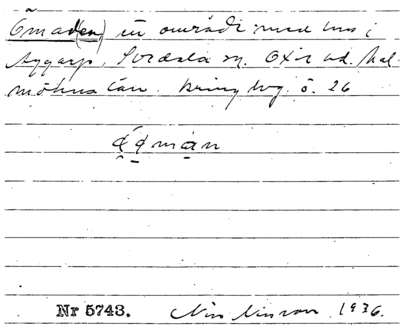 Ömad(en) ett område med hus i
Aggarp, Svedala sn. Oxie hd. Mal-
möhus län. kring hög. ö. 26
Nr 5743. Nils Nilsson 1936.